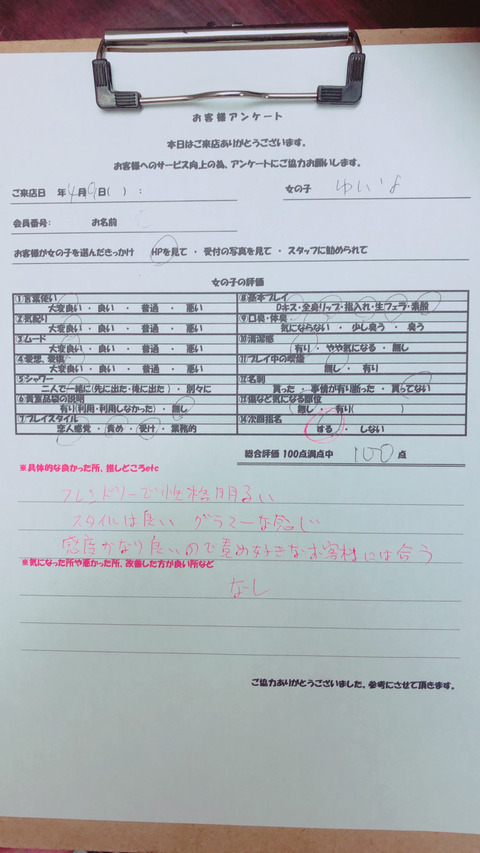 お客様アンケート
本日はご来店ありがとうございます。
お客様へのサービス向上の為、アンケートにご協力お願いします。
ご来店日 年 4月9日( ) : 女の子
会員番号: お名前
お客様が女の子を選んだきっかけ HPを見て ・ 受付の写真を見て ・ スタッフに勧められて
女の子の評価
①言葉使い
大変良い ・ 良い ・ 普通 ・ 悪い
②気配り
大変良い ・ 良い ・ 普通 ・ 悪い
③ムード
大変良い ・ 良い ・ 普通 ・ 悪い
④愛想、愛嬌
大変良い ・ 良い ・ 普通 ・ 悪い
⑤シャワー
二人で一緒に(先に出た・後に出た) ・ 別々に
⑥貴重品袋の説明
有り(利用・利用しなかった) ・ 無し
⑦プレイスタイル
恋人感覚 ・ 責め ・ 受け ・ 業務的
⑧基本プレイ
Dキス・全身リップ・指入れ・生フェラ・素股
⑨口臭・体臭
気にならない ・ 少し臭う ・ 臭う
⑩清潔感
有り ・ やや気になる ・ 無し
⑪プレイ中の喫煙
無し ・ 有り
⑫名刺
貰った ・ 事情が有り断った ・ 貰ってない
⑬傷など気になる部位
無し ・ 有り( )
⑭次回指名
する ・ しない
総合評価 100点満点中 100 点
※具体的な良かった所、推しどころetc
フレンドリーで性格明るい
スタイルは良い グラマーな感じ
感度かなり良いので責め好きなお客様には合う
※気になった所や悪かった所、改善した方が良い所など
なし
ご協力ありがとうございました。参考にさせて頂きます。